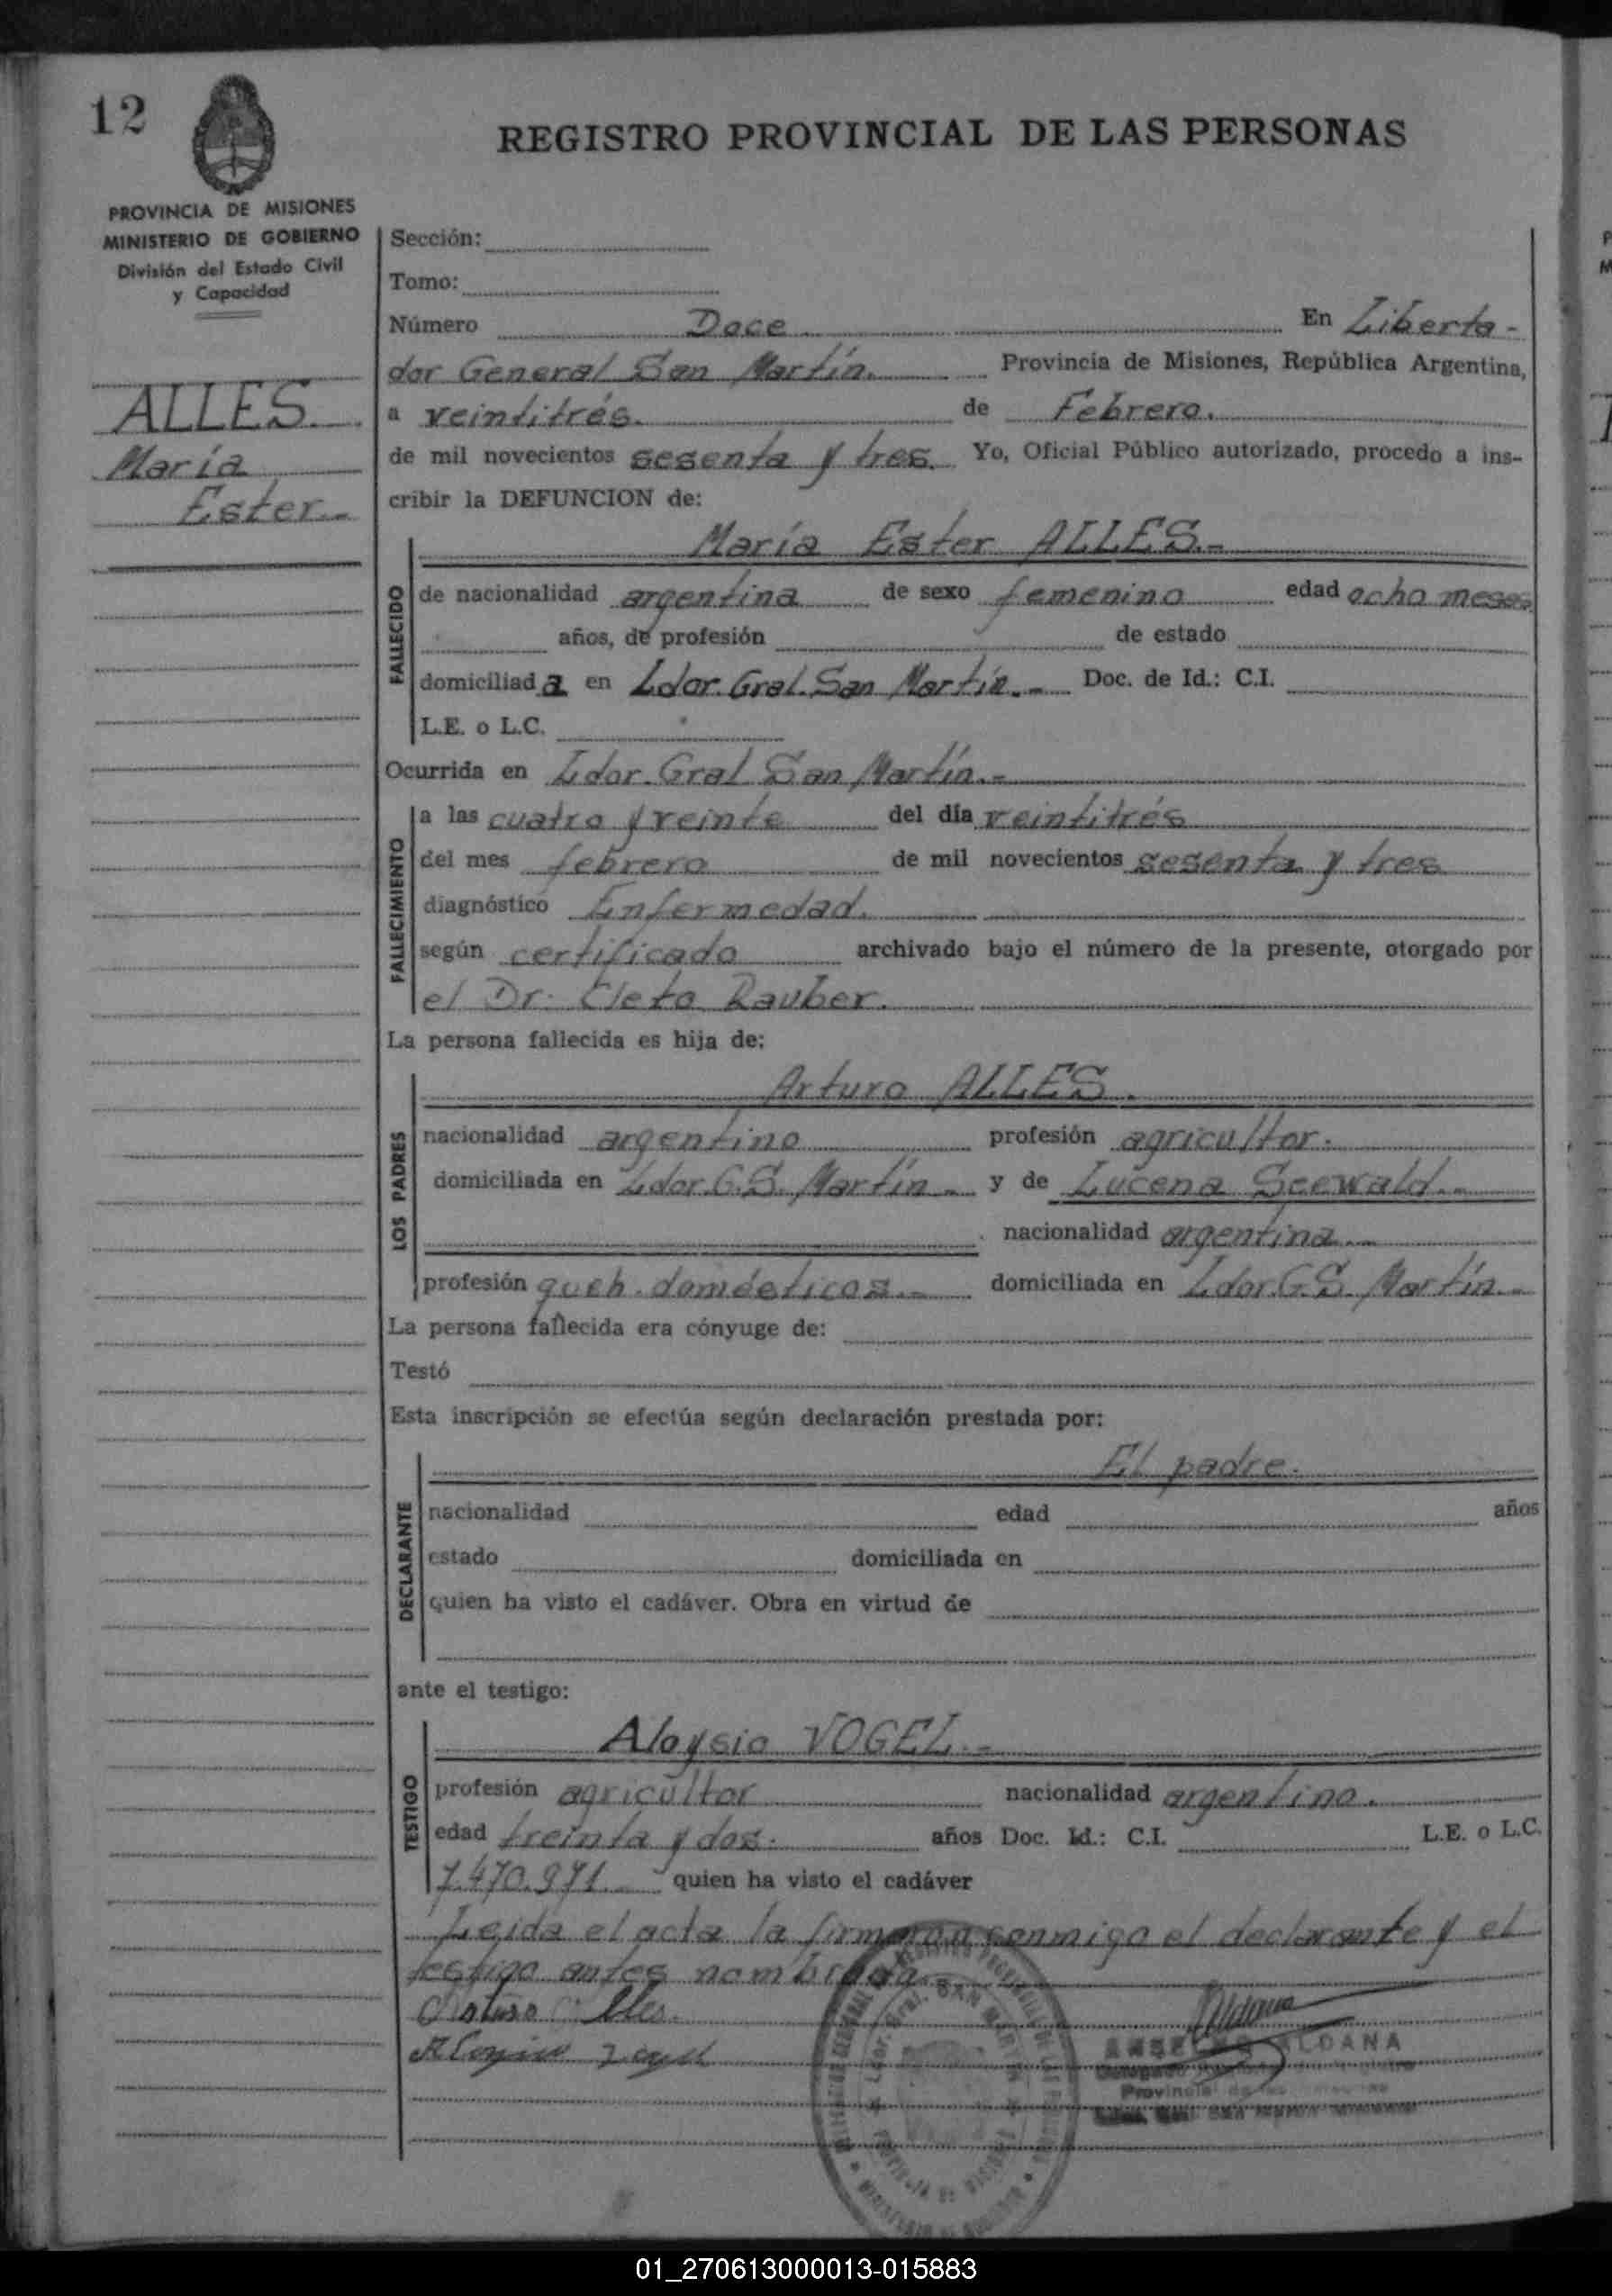 12
REGISTRO PROVINCIAL DE LAS PERSONAS
PROVINCIA DE MISIONES
MINISTERIO DE GOBIERNO
División del Estado Civil
y Capacidad
ALLES
María
Ester.-
Sección:
Tomo:
Número Doce En Liberta-
dor General San Martín. Provincia de Misiones, República Argentina,
a veintitrés. de Febrero.
de mil novecientos sesenta y tres. Yo, Oficial Público autorizado, procedo a ins-
cribir la DEFUNCION de:
María Ester ALLES.-
FALLECIDO
de nacionalidad argentina de sexo femenino edad ocho meses
años, de profesión de estado
domiciliad a en Ldor. Gral. San Martín.- Doc. de Id.: C.I.
L.E. o L.C.
Ocurrida en Ldor. Gral San Martín.-
FALLECIMIENTO
a las cuatro y veinte del día veintitrés
del mes febrero de mil novecientos sesenta y tres
diagnóstico Enfermedad.
según certificado archivado bajo el número de la presente, otorgado por
el Dr. Cleto Rauber.
La persona fallecida es hija de:
Arturo ALLES.
LOS PADRES
nacionalidad argentino profesión agricultor.
domiciliada en Ldor. G.S. Martín.- y de Lucena Seewald.-
nacionalidad argentina.-
profesión queh. domésticos.- domiciliada en Ldor. G.S. Martín.-
La persona fallecida era cónyuge de:
Testó
Esta inscripción se efectúa según declaración prestada por:
El padre.
DECLARANTE
nacionalidad edad años
estado domiciliada en
quien ha visto el cadáver. Obra en virtud de
ante el testigo:
Aloysio VOGEL.-
TESTIGO
profesión agricultor nacionalidad argentino.
edad treinta y dos. años Doc. Id.: C.I. L.E. o L.C.
7.470.971. quien ha visto el cadáver
Leida el acta la firmaron conmigo el declarante y el
testigo antes nombrado.
Arturo Alles.
ALDANA
Provincial de las
Ldor. Gral. SAN MARTIN
01_270613000013-015883